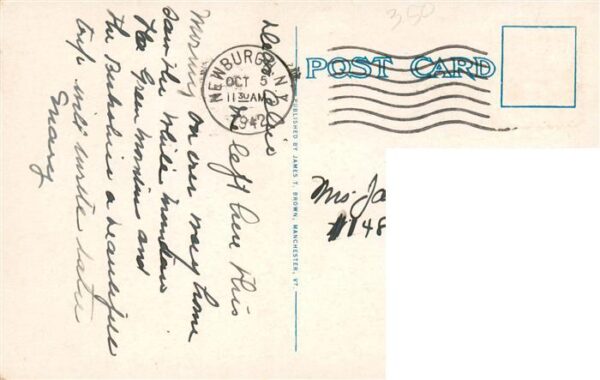 350
POST CARD
NEWBURGH N.Y.
OCT 5
11 30 AM
1942
PUBLISHED BY JAMES T. BROWN, MANCHESTER, VT.
left here this
Morning on our way home
saw the White Mountains
the Green Mountains and
the Berkshires a beautiful
trip will write later
Mary
Mrs. Ja
148